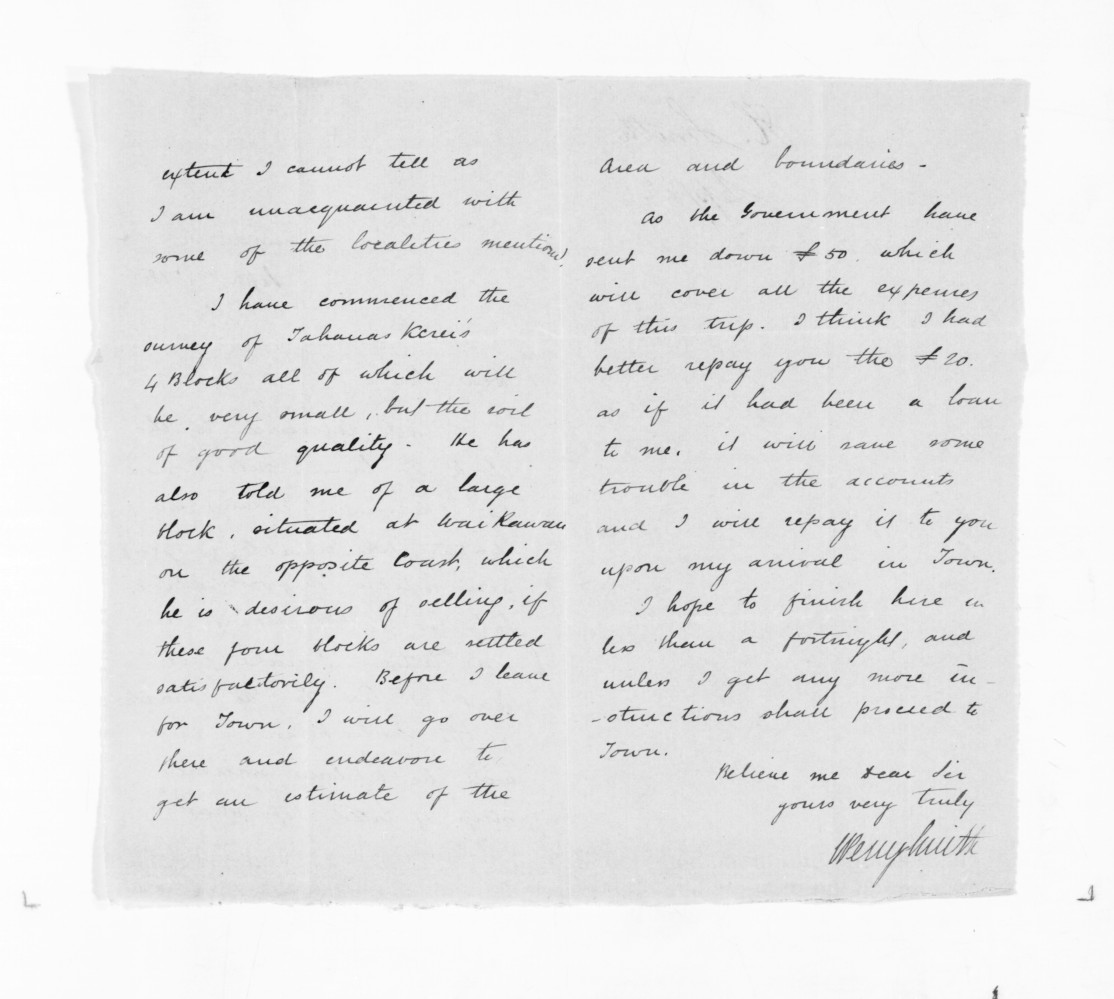 extent I cannot tell as
I am unacquainted with
some of the localities mentiond.
I have commenced the
survey of Tahanas Kerei's
4 Blocks all of which will
be very small, but the soil
of good quality. He has
also told me of a large
block, situated at
on the opposite Coast, which
he is desirous of selling, if
these four blocks are settled
satisfactorily. Before I leave
for Town, I will go over
there and endeavore to
get an estimate of the
area and boundaries -
As the Government have
sent me down £50. which
will cover all the expenses
of this trip. I think I had
better repay you the £20.
as if it had been a loan
to me, it will save some
trouble in the accounts
and I will repay it to you
upon my arrival in Town.
I hope to finish here in
less than a fortnight, and
unless I get any more in-
-structions shall proceed to
Town.
Believe me Dear Sir
yours very truly
WPercySmith